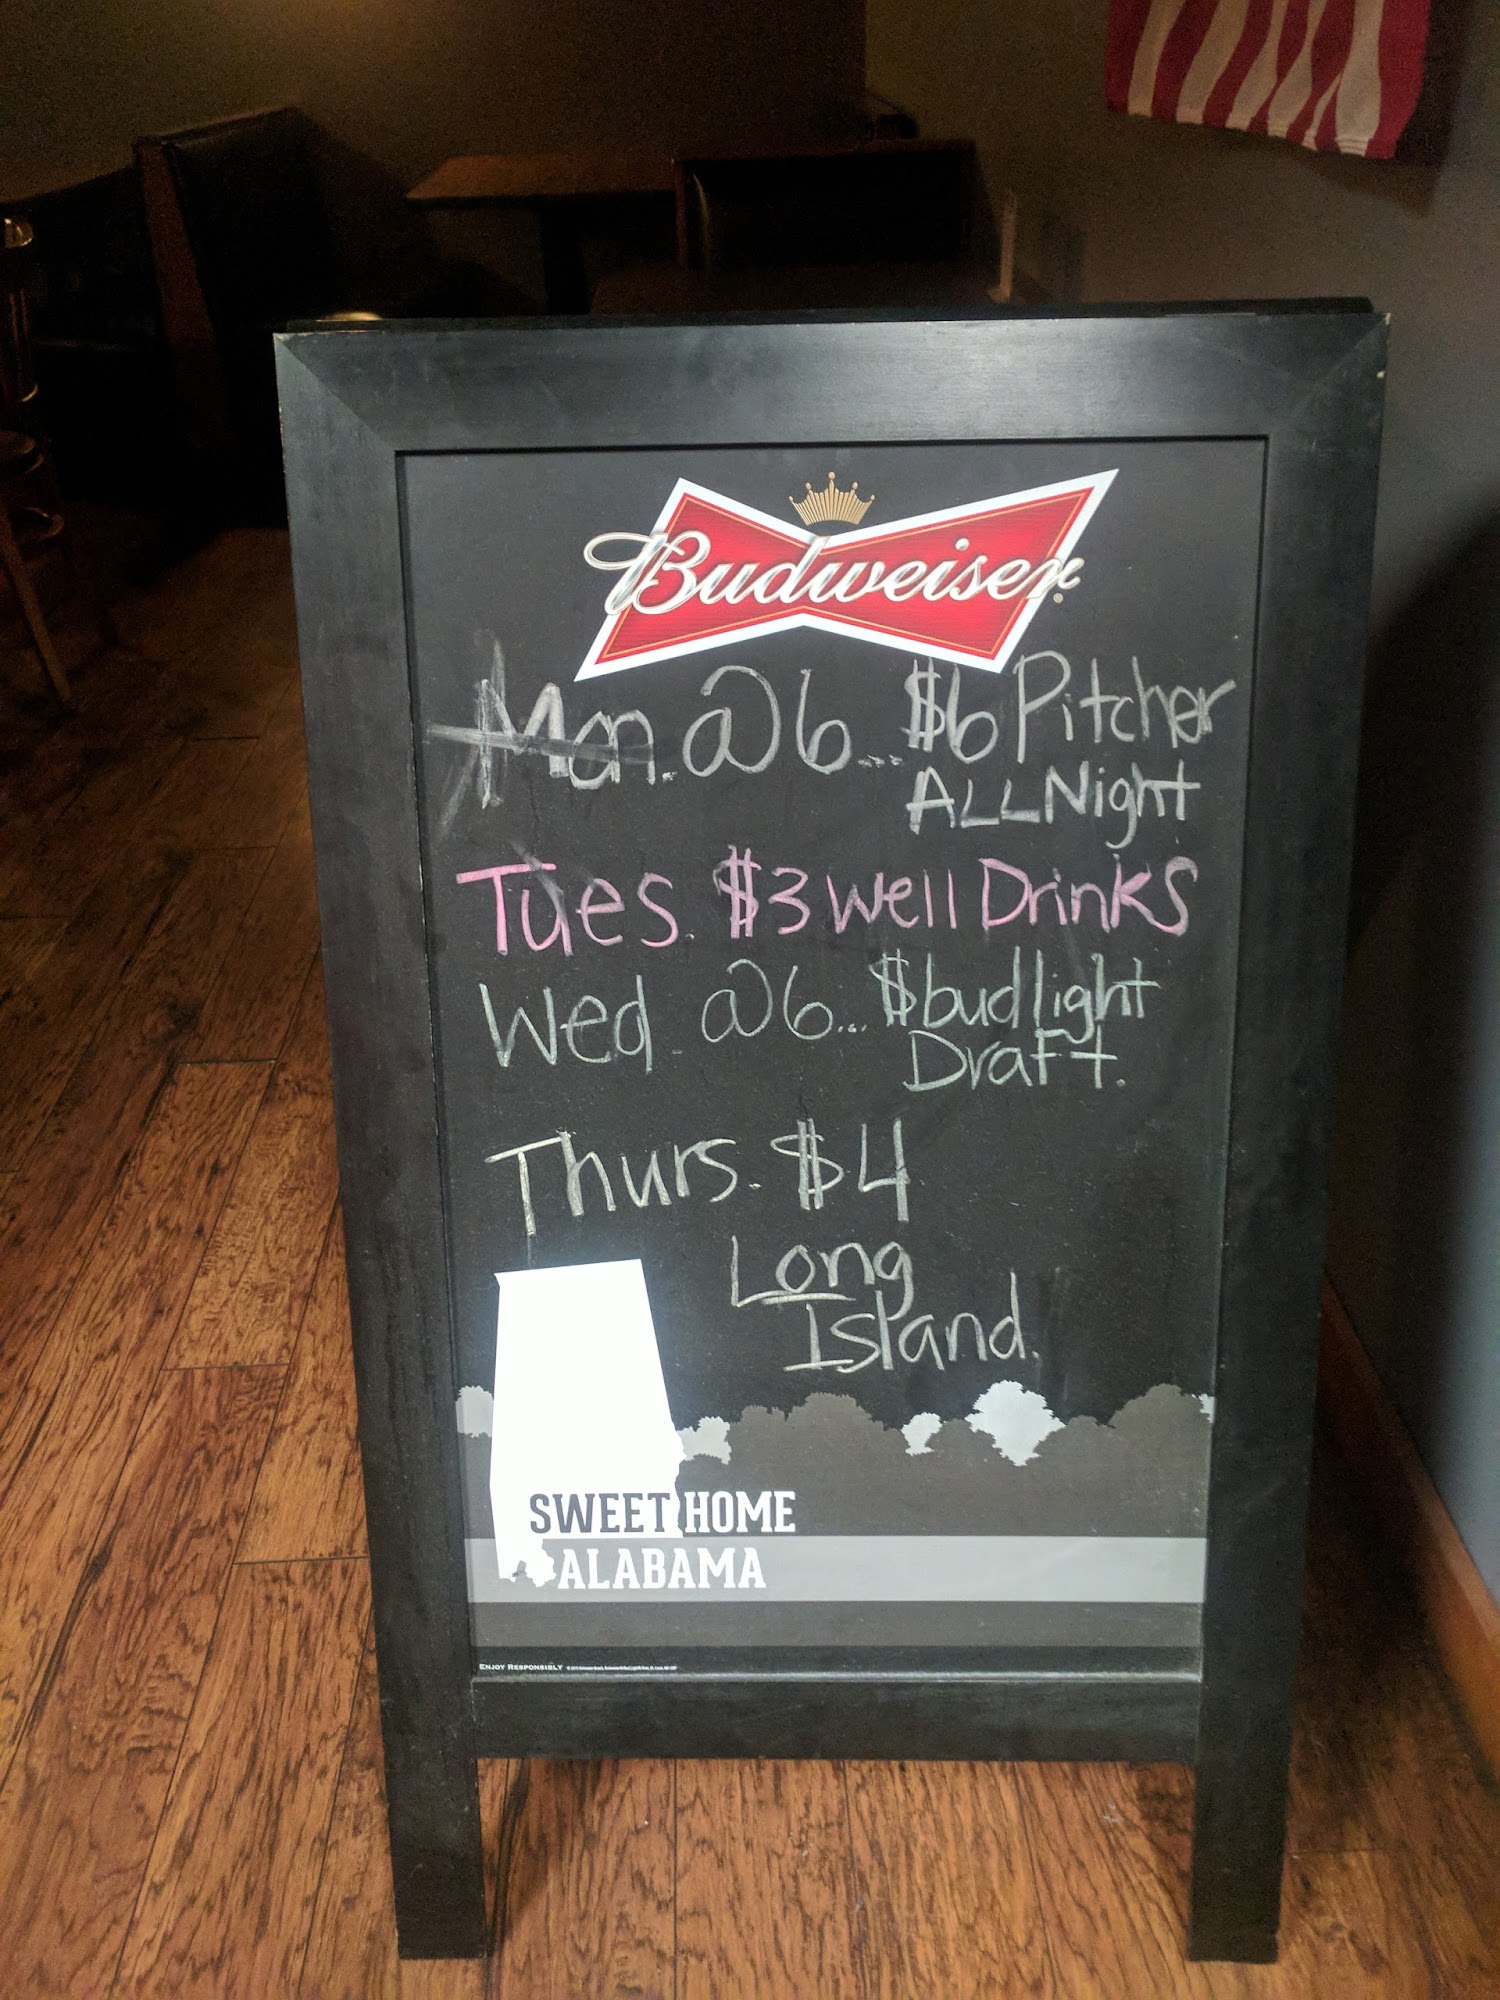 Budweiser
Mon. @ 6... $6 Pitcher
ALL Night
Tues. $3 well Drinks
Wed. @ 6... $bud light
Draft.
Thurs. $4
Long
Island.
SWEET HOME
ALABAMA
ENJOY RESPONSIBLY